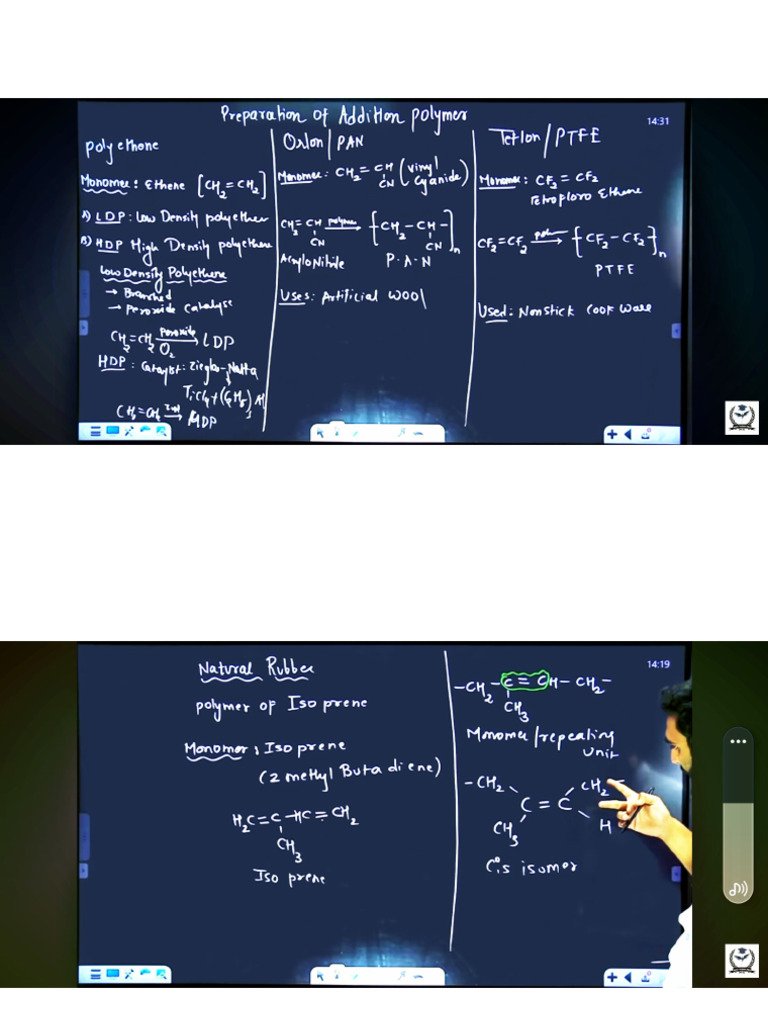 Preparation of Addition polymer
14:31
polyethene
Monomer: Ethene [CH2=CH2]
A) LDP: Low Density polyether
B) HDP High Density polyethene
Low Density Polyethene
→ Branched
→ Peroxide Catalyse
CH2=CH2 Peroxide → LDP
O2
HDP: Catalyst: Ziegler-Natta
TiCl4+(C2H5)3Al
CH2=CH2 → HDP
Orlon/PAN
Monomer: CH2=CH (Vinyl
CN Cyanide)
CH2=CH polymer → [CH2-CH-]n
CN CN
AcryloNitrile P.A.N
Uses: Artificial wool
Teflon/PTFE
Monomer: CF2=CF2
CF2=CF2 → [CF2-CF2]n
PTFE
Used: Nonstick Cook ware
14:19
Natural Rubber
polymer of Iso prene
Monomer: Iso prene
(2 methyl Buta diene)
H2C=C-HC=CH2
CH3
Iso prene
-CH2-C=CH-CH2-
CH3
Monomer/repeating
unit
-CH2 CH2-
C=C
CH3 H
Cis isomer